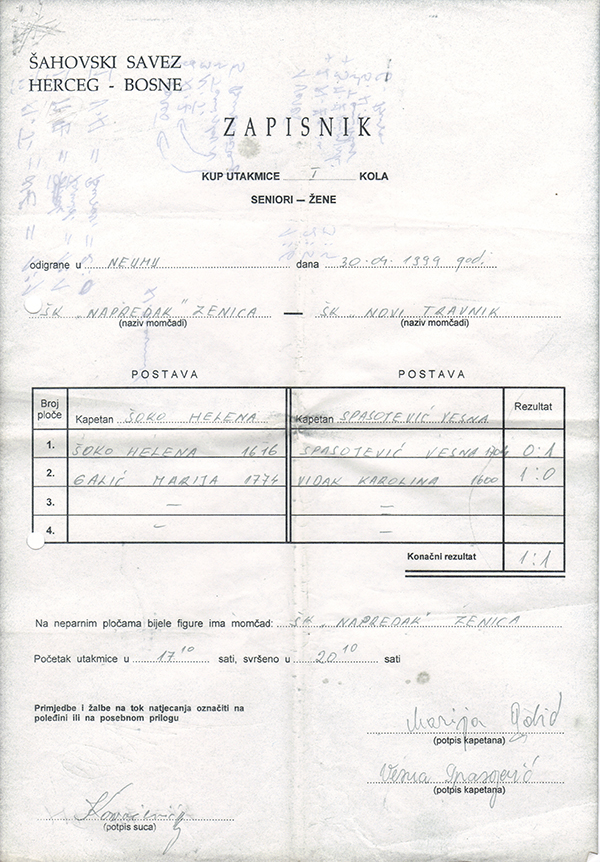 ŠAHOVSKI SAVEZ
HERCEG - BOSNE
ZAPISNIK
KUP UTAKMICE I KOLA
SENIORI — ŽENE
odigrane u NEUMU dana 30.04.1999 god.
ŠK „NAPREDAK" ZENICA — ŠK „NOVI TRAVNIK
(naziv momčadi) (naziv momčadi)
POSTAVA POSTAVA
Broj ploče Kapetan ŠOKO HELENA Kapetan SPASOJEVIĆ VESNA Rezultat
1. ŠOKO HELENA 1616 SPASOJEVIĆ VESNA 1704 0:1
2. GALIĆ MARIJA 1774 VIDAK KAROLINA 1600 1:0
3. — —
4. — —
Konačni rezultat 1:1
Na neparnim pločama bijele figure ima momčad: ŠK „NAPREDAK" ZENICA
Početak utakmice u 17 10 sati, svršeno u 20 10 sati
Primjedbe i žalbe na tok natjecanja označiti na
poleđini ili na posebnom prilogu
Marija
(potpis kapetana)
Vesna Spasojević
(potpis kapetana)
(potpis suca)